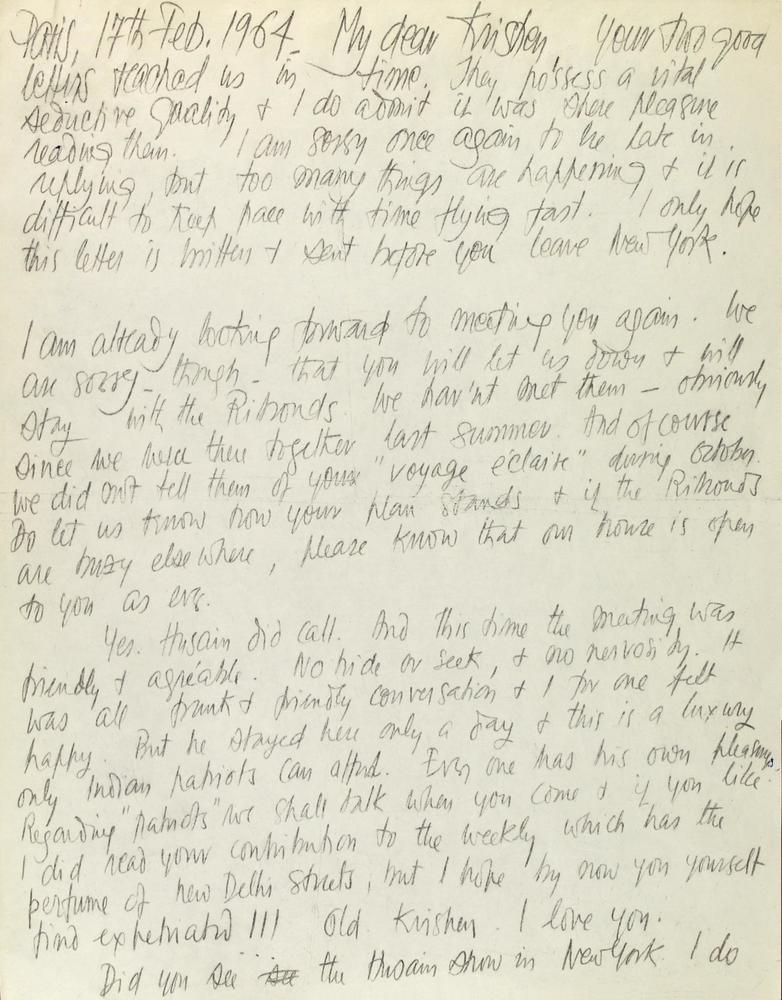 Paris, 17th Feb. 1964_ My dear Krishen, your two good
letters reached us in time. They possess a vital
seductive quality & I do admit it was sheer pleasure
reading them. I am sorry once again to be late in
replying, but too many things are happening & it is
difficult to keep pace with time flying fast. I only hope
this letter is written & sent before you leave New York.
I am already looking forward to meeting you again. We
are sorry - though - that you will let us down & will
stay with the Ribouds. We hav'nt met them - obviously
since we were there together last summer. And of course
we did not tell them of your "voyage éclaire" during October.
Do let us know how your plan stands & if the Ribouds
are buzy elsewhere, please know that our house is open
to you as ever.
Yes. Husain did call. And this time the meeting was
friendly & agréable. No hide or seek, & no nervosity. It
was all frank & friendly conversation & I for one felt
happy. But he stayed here only a day & this is a luxury
only Indian patriots can afford. Every one has his own pleasures.
Regarding "patriots" we shall talk when you come & if you like.
I did read your contribution to the weekly which has the
perfume of new Delhi streets, but I hope by now you yourself
find expatriated !!! Old Krishen. I love you.
Did you see the Husain show in New York. I do